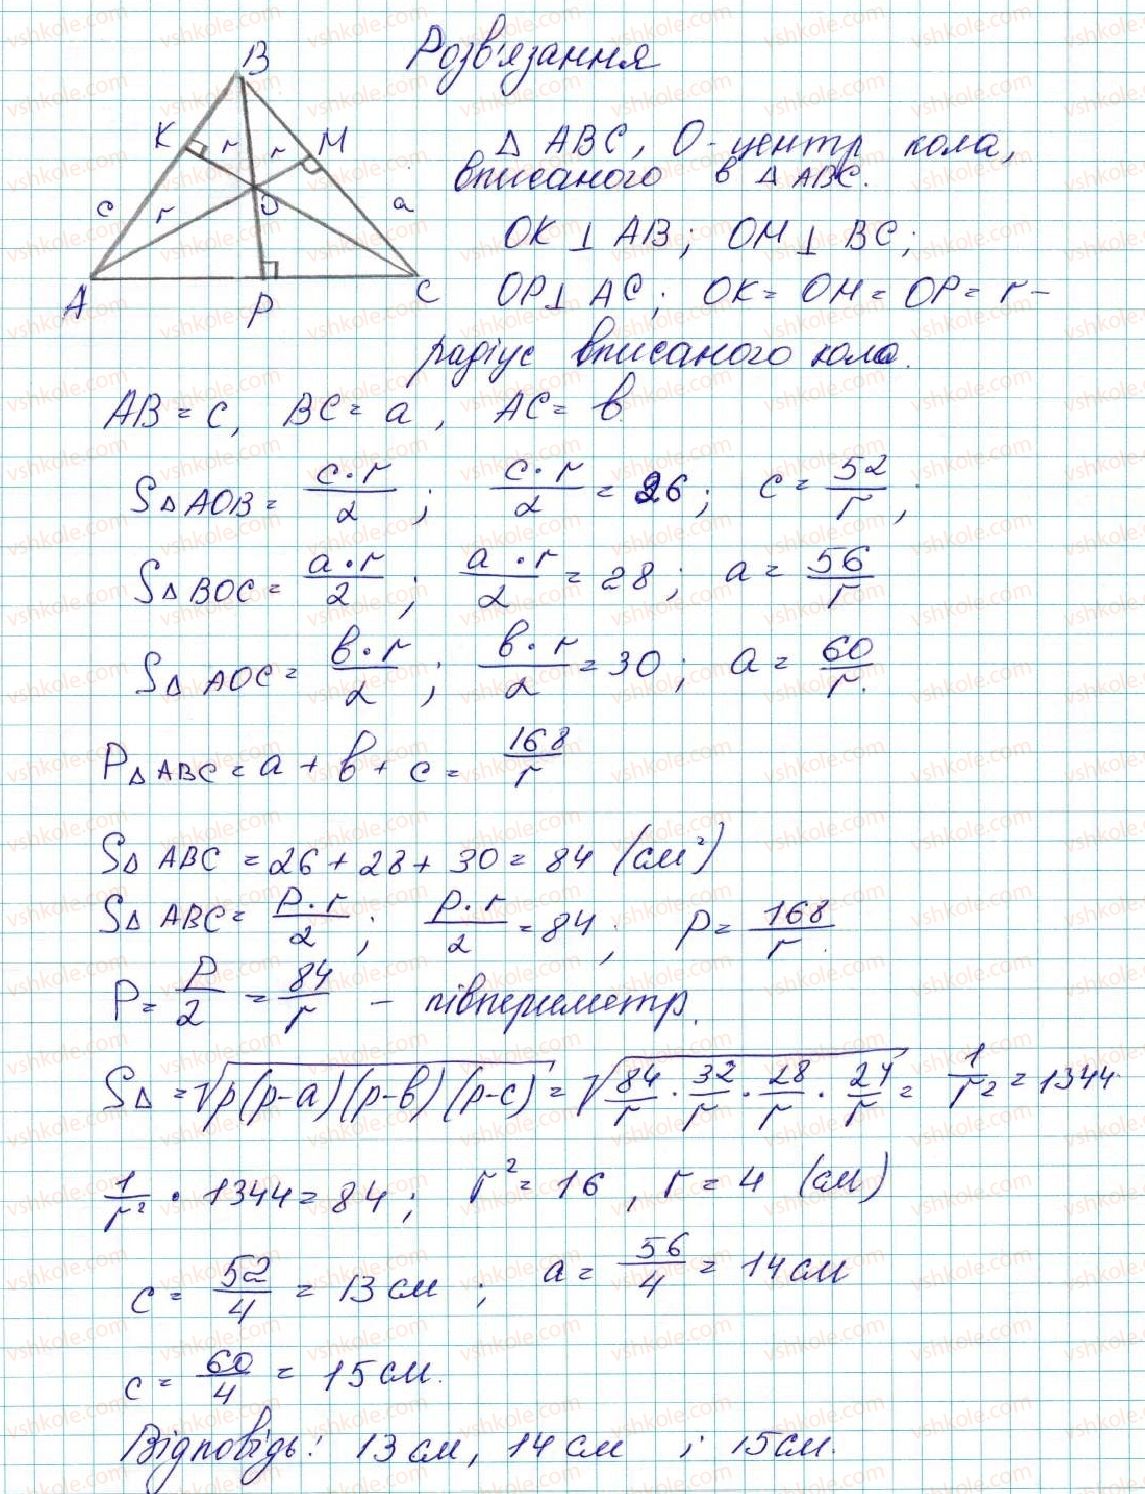 Розв'язання
B
K
r
r
M
Δ ABC, O - центр кола,
вписаного в Δ ABC.
c
r
O
a
OK ⊥ AB; OM ⊥ BC;
A
P
C
OP ⊥ AC; OK = OM = OP = r -
радіус вписаного кола.
AB = c, BC = a, AC = b
SΔ AOB = c·r/2; c·r/2 = 26; c = 52/r;
SΔ BOC = a·r/2; a·r/2 = 28; a = 56/r
SΔ AOC = b·r/2; b·r/2 = 30; a = 60/r.
PΔ ABC = a + b + c = 168/r
SΔ ABC = 26 + 28 + 30 = 84 (см²)
SΔ ABC = P·r/2; P·r/2 = 84; P = 168/r.
P = P/2 = 84/r - півпериметр.
SΔ = √p(p-a)(p-b)(p-c) = √84/r · 32/r · 28/r · 24/r = 1/r² = 1344
1/r² · 1344 = 84; r² = 16, r = 4 (см)
c = 52/4 = 13 см; a = 56/4 = 14 см
c = 60/4 = 15 см.
Відповідь: 13 см, 14 см ; 15 см.